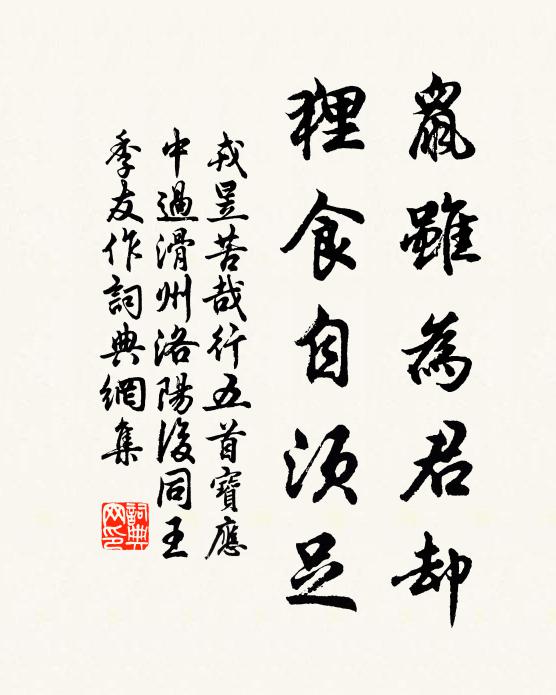 鼠雖為君却
狸食自須足
戎昱苦哉行五首寶應
中過滑州洛陽後同王
季友作詞典網集
詞典网印